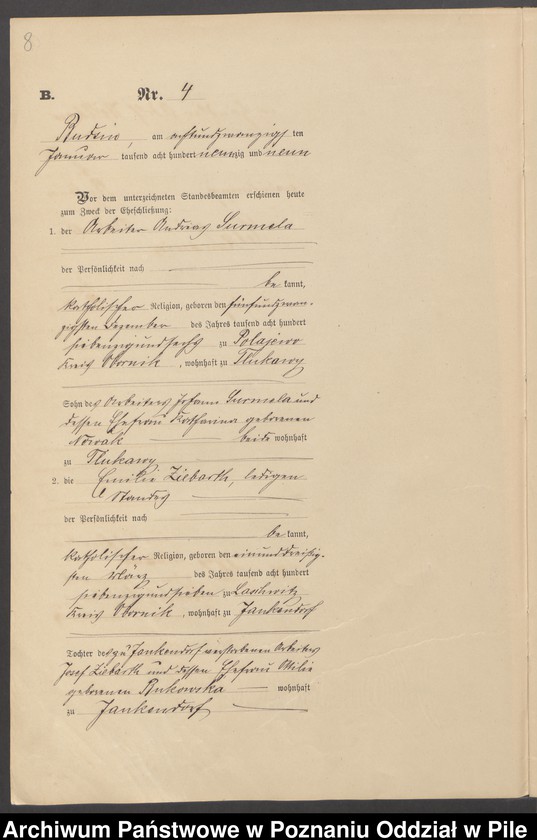 8
B. Nr. 4
Rudsin, am achtundzwanzigsten
Januar tausend acht hundert neunzig und neun
Vor dem unterzeichneten Standesbeamten erschienen heute
zum Zweck der Eheschließung:
1. der Arbeiter Andreas Surmela
der Persönlichkeit nach
bekannt,
katholischer Religion, geboren den fünfundzwan-
zigsten Dezember des Jahres tausend acht hundert
siebenzigundsechs zu Polajewo
Kreis Obornik, wohnhaft zu Tlukawy
Sohn des Arbeiters Johann Surmela und
dessen Ehefrau Katharina geborenen
Nowak beide wohnhaft
zu Tlukawy
2. die Emilie Ziebarth, ledigen
Standes
der Persönlichkeit nach
bekannt,
katholischer Religion, geboren den einunddreißig-
sten März des Jahres tausend acht hundert
siebenzigundsieben zu Laskowitz
Kreis Obornik, wohnhaft zu Jankendorf
Tochter des zu Jankendorf verstorbenen Arbeiters
Josef Ziebarth und dessen Ehefrau Otilie
geborenen Rutkowska wohnhaft
zu Jankendorf
Archiwum Państwowe w Poznaniu Oddział w Pile